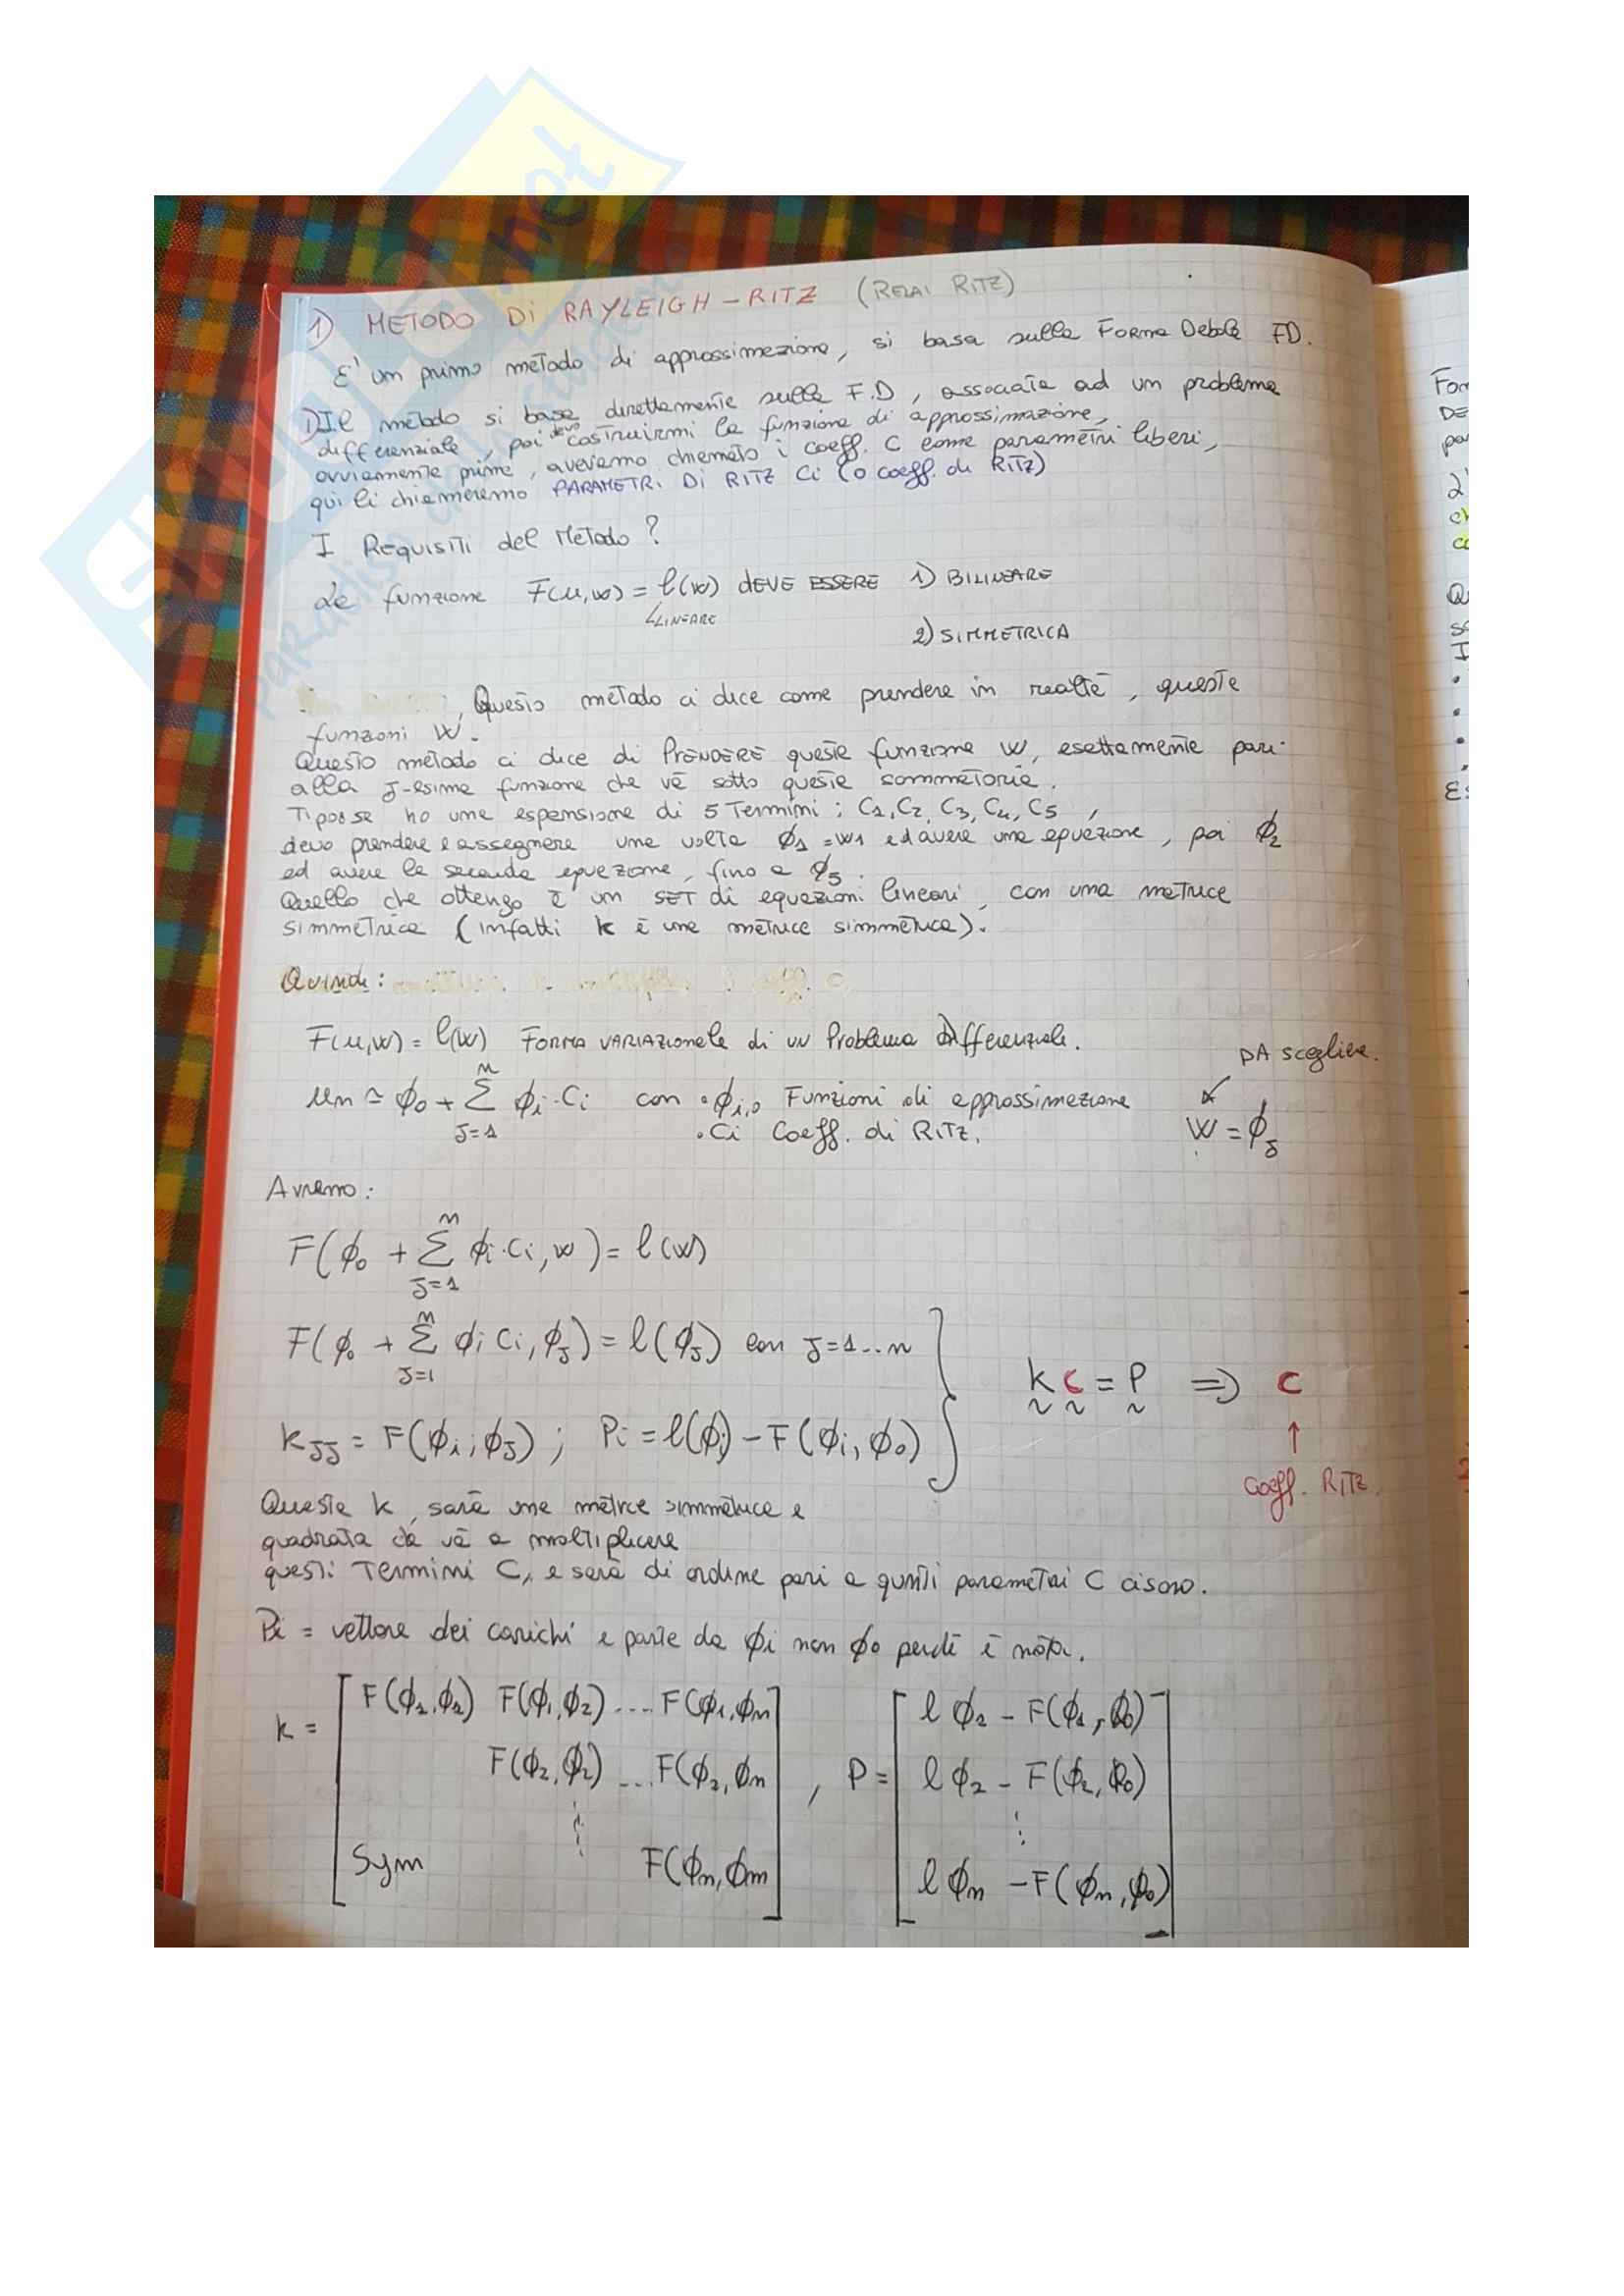 1) METODO Di RAYLEIGH-RITZ (RELAI RITZ)
E' un primo metodo di approssimazione, si basa sulla Forma Debole FD.
1) Il metodo si basa direttamente sulla F.D, associata ad un problema
differenziale, poi devo costruirmi la funzione di approssimazione,
ovviamente prima, avevamo chiamato i coeff. C come parametri liberi,
qui li chiameremo PARAMETRI DI RITZ Ci (o coeff. di RITZ)
I Requisiti del Metodo?
La funzione F(u,w) = l(w) DEVE ESSERE 1) BILINEARE
LINEARE
2) SIMMETRICA
, Questo metodo ci dice come prendere in realtà, queste
funzioni W.
Questo metodo ci dice di PRENDERE queste funzione W, esattamente pari
alla J-esima funzione che và sotto queste sommatoria.
Tipo se ho una espansione di 5 Termini; C1, C2, C3, C4, C5,
devo prendere e assegnare una volta ϕ1 = w1 ed avere una equazione, poi ϕ2
ed avere la seconda equazione, fino a ϕ5.
Quello che ottengo è un SET di equazioni lineari, con una matrice
simmetrica (infatti k è una matrice simmetrica).
Quindi:
F(u,w) = l(w) FORMA VARIAZIONALE di un Problema Differenziale.
DA scegliere.
un ≃ ϕ0 + Σ ϕi·Ci con • ϕi,0 Funzioni di approssimazione
n
J=1
• Ci Coeff. di RITZ.
W = ϕJ
Avremo:
F(ϕ0 + Σ ϕi·Ci, w) = l(w)
n
J=1
F(ϕ0 + Σ ϕi Ci, ϕJ) = l(ϕJ) con J=1...n
n
J=1
k C = P ⇒ C
kJJ = F(ϕi, ϕJ); Pi = l(ϕi) - F(ϕi, ϕ0)
↑
Coeff. RITZ.
Questa k, sarà una matrice simmetrica e
quadrata che và a moltiplicare
questi Termini C, e sarà di ordine pari a quanti parametri C ci sono.
Pi = vettore dei carichi e parte da ϕi non ϕ0 perché è nota.
k = [ F(ϕ1,ϕ1) F(ϕ1,ϕ2) .... F(ϕ1,ϕn
F(ϕ2,ϕ2) ... F(ϕ2,ϕn
Sym F(ϕn,ϕm ]
, P = [ l ϕ2 - F(ϕ1,ϕ0)
l ϕ2 - F(ϕ2,ϕ0)
l ϕn - F(ϕn,ϕ0) ]